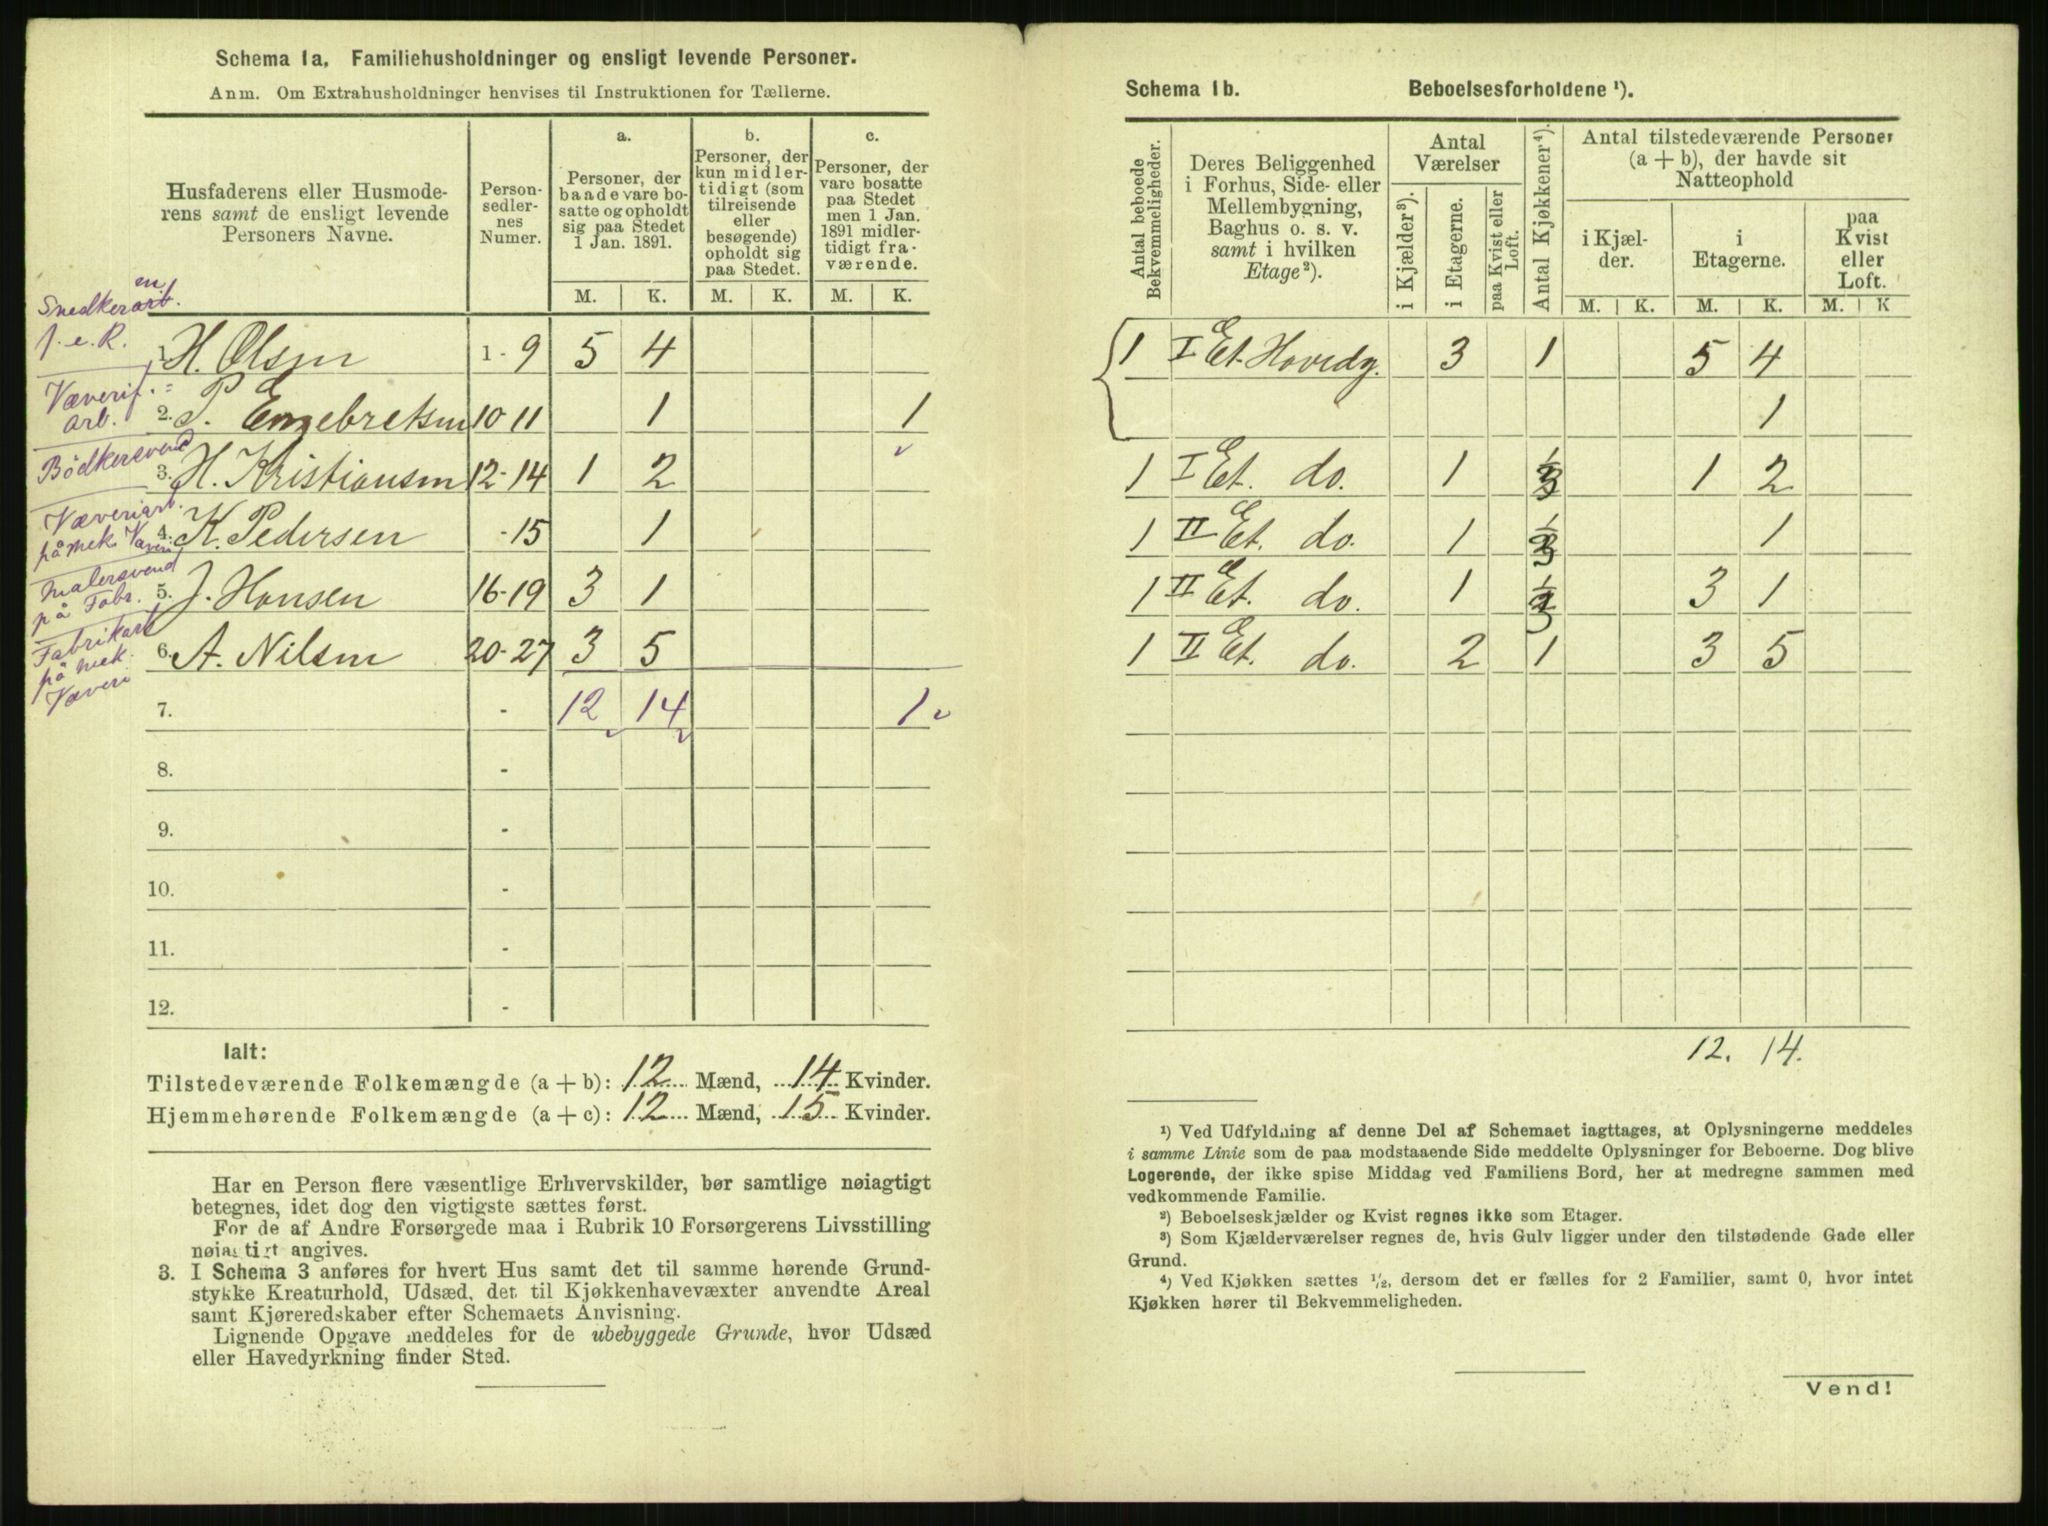 Schema 1a. Familiehusholdninger og ensligt levende Personer.
Anm. Om Extrahusholdninger henvises til Instruktionen for Tællerne.
Husfaderens eller Husmode-
rens samt de ensligt levende
Personers Navne.
Person-
sedler-
nes
Numer.
a.
Personer, der
baade vare bo-
satte og opholdt
sig paa Stedet
1 Jan. 1891.
b.
Personer, der
kun midler-
tidigt (som
tilreisende
eller
besøgende)
opholdt sig
paa Stedet.
c.
Personer, der
vare bosatte
paa Stedet
men 1 Jan.
1891 midler-
tidigt fra-
værende.
M. K. M. K. M. K.
Snedkerarb.
f. e. R.
1. H. Olsen 1 - 9 5 4
Væverif.=
arb.
2. P. Engebretsen 10 11 1 1
Bödkersvend
3. H. Kristiansen 12-14 1 2
Væveriarb.
på mek. Væveri
4. K. Pedersen -15 1
Malersvend
på Fabr.
5. J. Hansen 16-19 3 1
Fabrikarb
på mek.
Væveri
6. A. Nilsen 20-27 3 5
7. - 12 14 1
8. -
9. -
10. -
11. -
12. -
Ialt:
Tilstedeværende Folkemængde (a + b): 12 Mænd, 14 Kvinder.
Hjemmehørende Folkemængde (a + c): 12 Mænd, 15 Kvinder.
Har en Person flere væsentlige Erhvervskilder, bør samtlige nøiagtigt
betegnes, idet dog den vigtigste sættes først.
For de af Andre Forsørgede maa i Rubrik 10 Forsørgerens Livsstilling
nøiagtigt angives.
3. I Schema 3 anføres for hvert Hus samt det til samme hørende Grund-
stykke Kreaturhold, Udsæd, det til Kjøkkenhavevæxter anvendte Areal
samt Kjøreredskaber efter Schemaets Anvisning.
Lignende Opgave meddeles for de ubebyggede Grunde, hvor Udsæd
eller Havedyrkning finder Sted.
Schema 1b. Beboelsesforholdene ¹).
Antal beboede
Bekvemmeligheder.
Deres Beliggenhed
i Forhus, Side- eller
Mellembygning,
Baghus o. s. v.
samt i hvilken
Etage ²).
Antal
Værelser
i Kjælder ³).
i Etagerne.
paa Kvist eller
Loft.
Antal Kjøkkener ⁴).
Antal tilstedeværende Personer
(a + b), der havde sit
Natteophold
i Kjæl-
der.
i
Etagerne.
paa
Kvist
eller
Loft.
M. K. M. K. M. K
1 I Et. Hovedg. 3 1 5 4
1
1 I Et. do. 1 1/3 1 2
1 II Et. do. 1 1/3 1
1 II Et. do. 1 1/3 3 1
1 II Et. do. 2 1 3 5
12. 14.
¹) Ved Udfyldning af denne Del af Schemaet iagttages, at Oplysningerne meddeles
i samme Linie som de paa modstaaende Side meddelte Oplysninger for Beboerne. Dog blive
Logerende, der ikke spise Middag ved Familiens Bord, her at medregne sammen med
vedkommende Familie.
²) Beboelseskjælder og Kvist regnes ikke som Etager.
³) Som Kjælderværelser regnes de, hvis Gulv ligger under den tilstødende Gade eller
Grund.
⁴) Ved Kjøkken sættes ½, dersom det er fælles for 2 Familier, samt 0, hvor intet
Kjøkken hører til Bekvemmeligheden.
Vend!